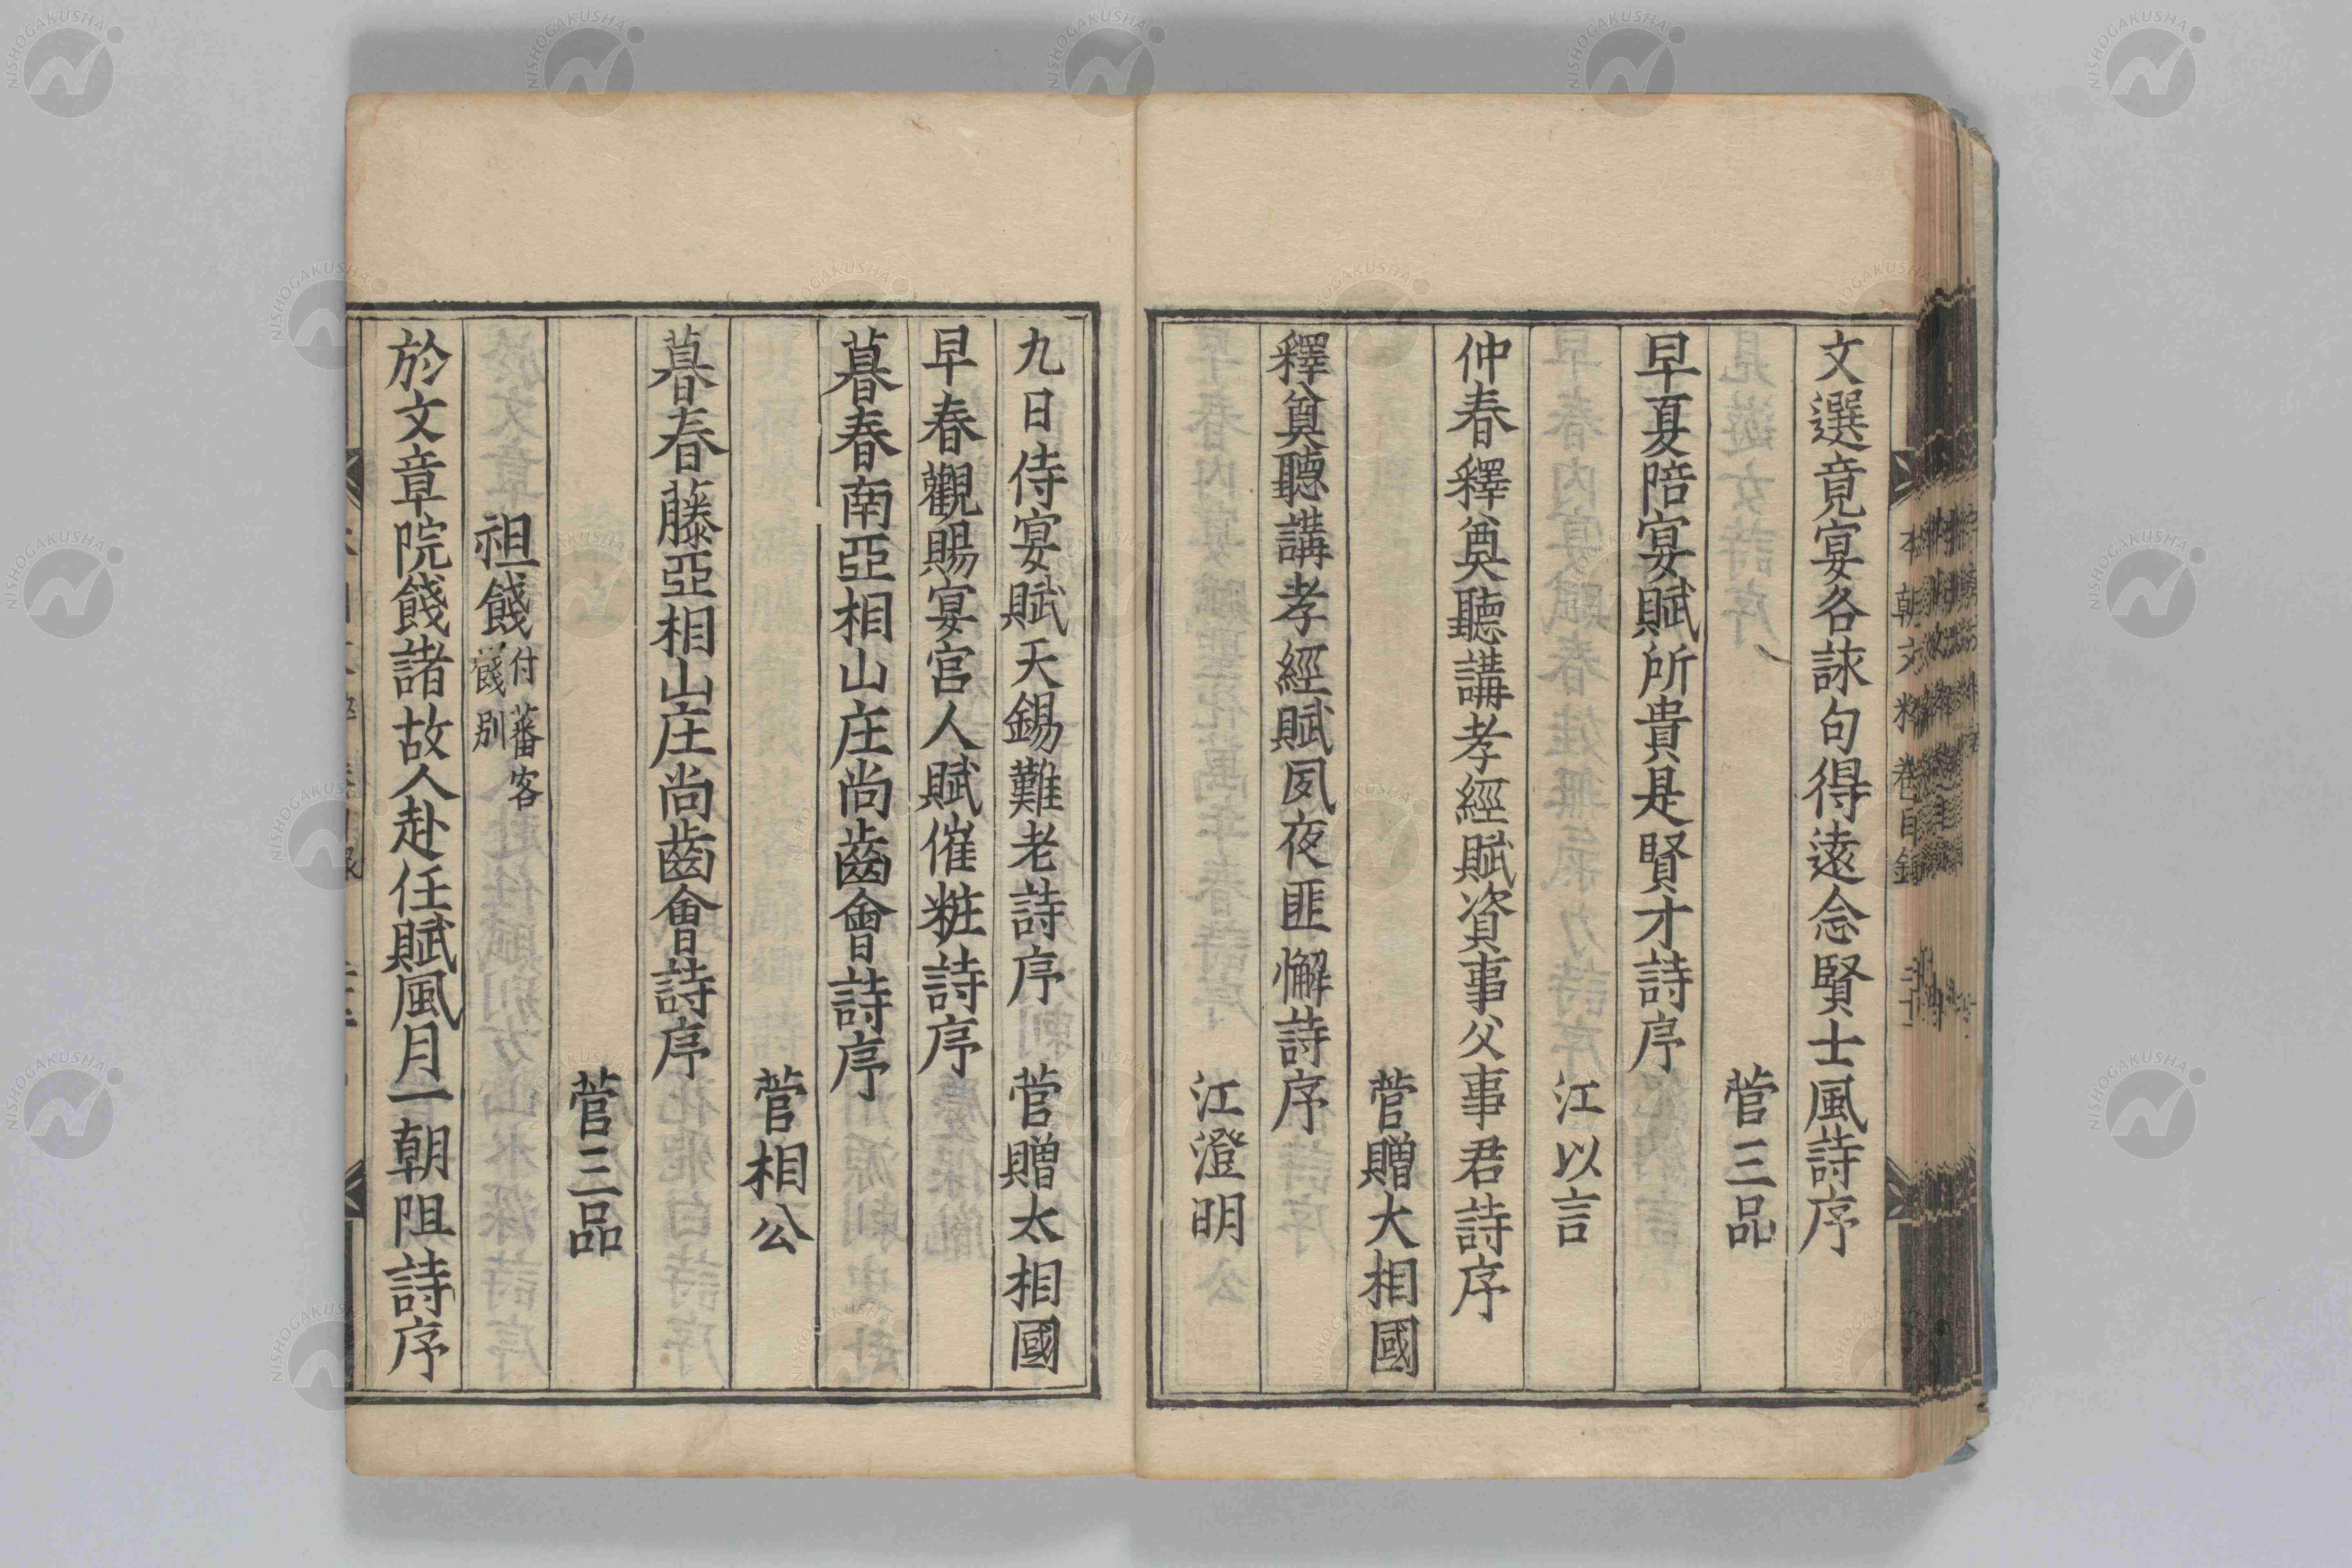 文選竟宴各詠句得遠念賢士風詩序
菅三品
早夏陪宴賦所貴是賢才詩序
江以言
仲春釋奠聽講孝經賦資事父事君詩序
菅贈大相國
釋奠聽講孝經賦夙夜匪懈詩序
江澄明
九日侍宴賦天錫難老詩序 菅贈太相國
早春觀賜宴宮人賦催粧詩序
暮春南亞相山庄尚齒會詩序
菅相公
暮春藤亞相山庄尚齒會詩序
菅三品
祖餞 付蕃客餞別
於文章院餞諸故人赴任賦風月一朝阻詩序
本朝文粹 卷目録
NISHOGAKUSHA